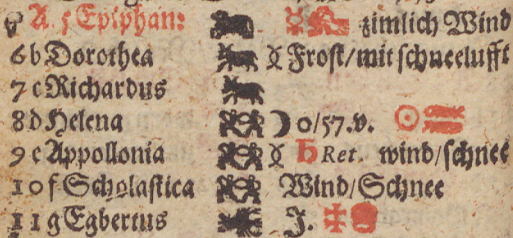 A. 5 Epiphan: zimlich Wind
6 b Dorothea Frost/mit schneelufft
7 c Richardus
8 d Helena ☽ 0/57.v. ☉
9 e Appollonia ♄ Ret. wind/schnee
10 f Scholastica Wind/Schnee
11 g Egbertus J.